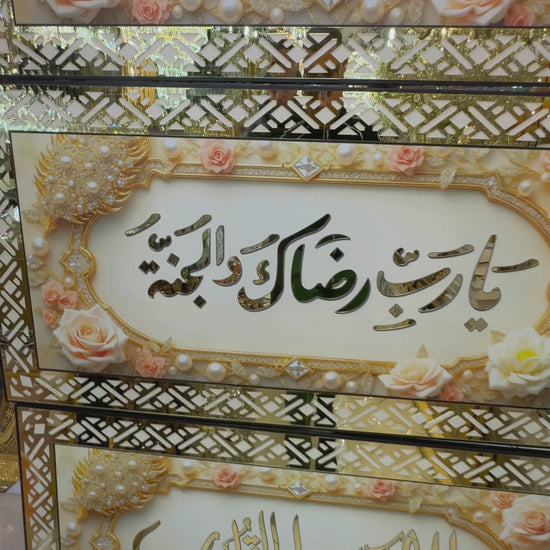 يَا رَبِّ رضَاك وَالجَنَّةَ